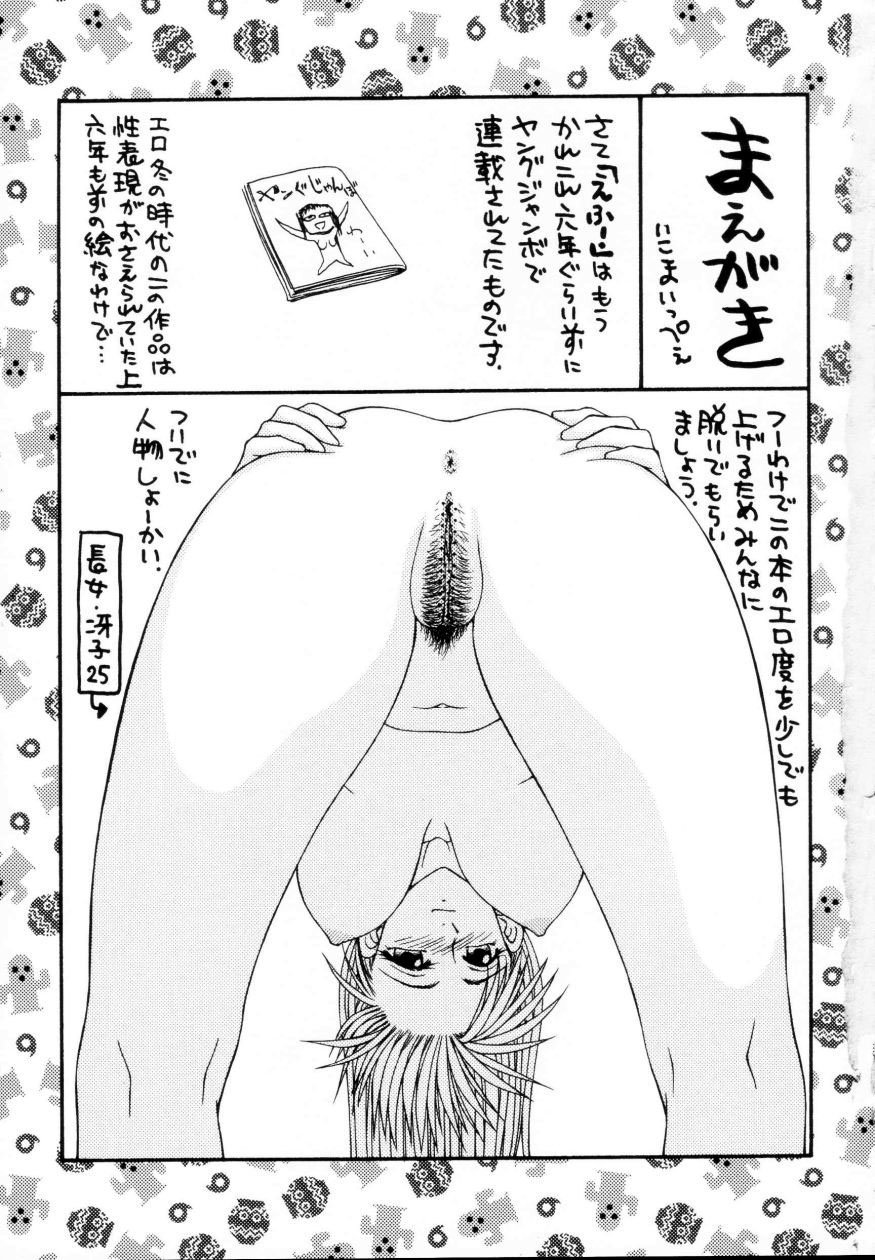 まえがき
いこまいっぺえ
さて「えふー!」はもう
かれこれ六年ぐらい前に
ヤングジャンボで
連載されてたものです.
ぢゃんば
わーい
エロ冬の時代のこの作品は
性表現がおさえられていた上
六年も前の絵なわけで…
つーわけでこの本のエロ度を少しでも
上げるためみんなに
脱いでもらい
ましょう.
ついでに
人物しょーかい.
長女・冴子25